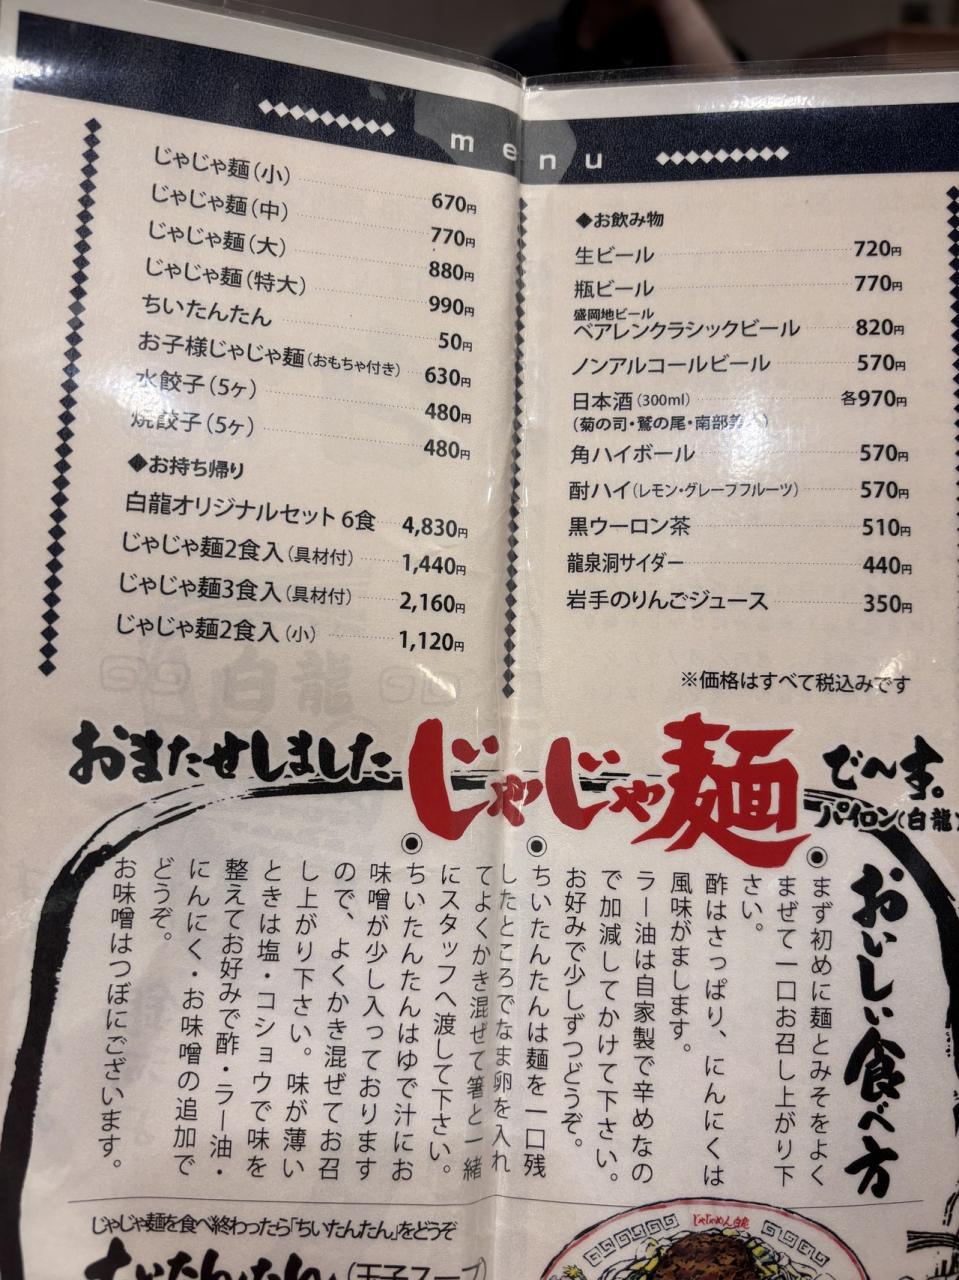 menu
じゃじゃ麺(小) 670円
じゃじゃ麺(中) 770円
じゃじゃ麺(大) 880円
じゃじゃ麺(特大) 990円
ちいたんたん 50円
お子様じゃじゃ麺(おもちゃ付き) 630円
水餃子(5ヶ) 480円
焼餃子(5ヶ) 480円
◆お持ち帰り
白龍オリジナルセット 6食 4,830円
じゃじゃ麺2食入(具材付) 1,440円
じゃじゃ麺3食入(具材付) 2,160円
じゃじゃ麺2食入(小) 1,120円
◆お飲み物
生ビール 720円
瓶ビール 770円
盛岡地ビール
ベアレンクラシックビール 820円
ノンアルコールビール 570円
日本酒(300ml) 各970円
(菊の司・鷲の尾・南部美人)
角ハイボール 570円
酎ハイ(レモン・グレープフルーツ) 570円
黒ウーロン茶 510円
龍泉洞サイダー 440円
岩手のりんごジュース 350円
※価格はすべて税込みです
おまたせしました じゃじゃ麺 で〜す。
パイロン(白龍)
おいしい食べ方
◉まず初めに麺とみそをよく
まぜて一口お召し上がり下
さい。
酢はさっぱり、にんにくは
風味がまします。
ラー油は自家製で辛めなの
で加減してかけて下さい。
お好みで少しずつどうぞ。
◉ちいたんたんは麺を一口残
したところでなま卵を入れ
てよくかき混ぜて箸と一緒
にスタッフへ渡して下さい。
◉ちいたんたんはゆで汁にお
味噌が少し入っております
ので、よくかき混ぜてお召
し上がり下さい。味が薄い
ときは塩・コショウで味を
整えてお好みで酢・ラー油・
にんにく・お味噌の追加で
どうぞ。
お味噌はつぼにございます。
じゃじゃ麺を食べ終わったら「ちいたんたん」をどうぞ
ちいたんたん(玉子スープ)
じゃじゃめん白龍